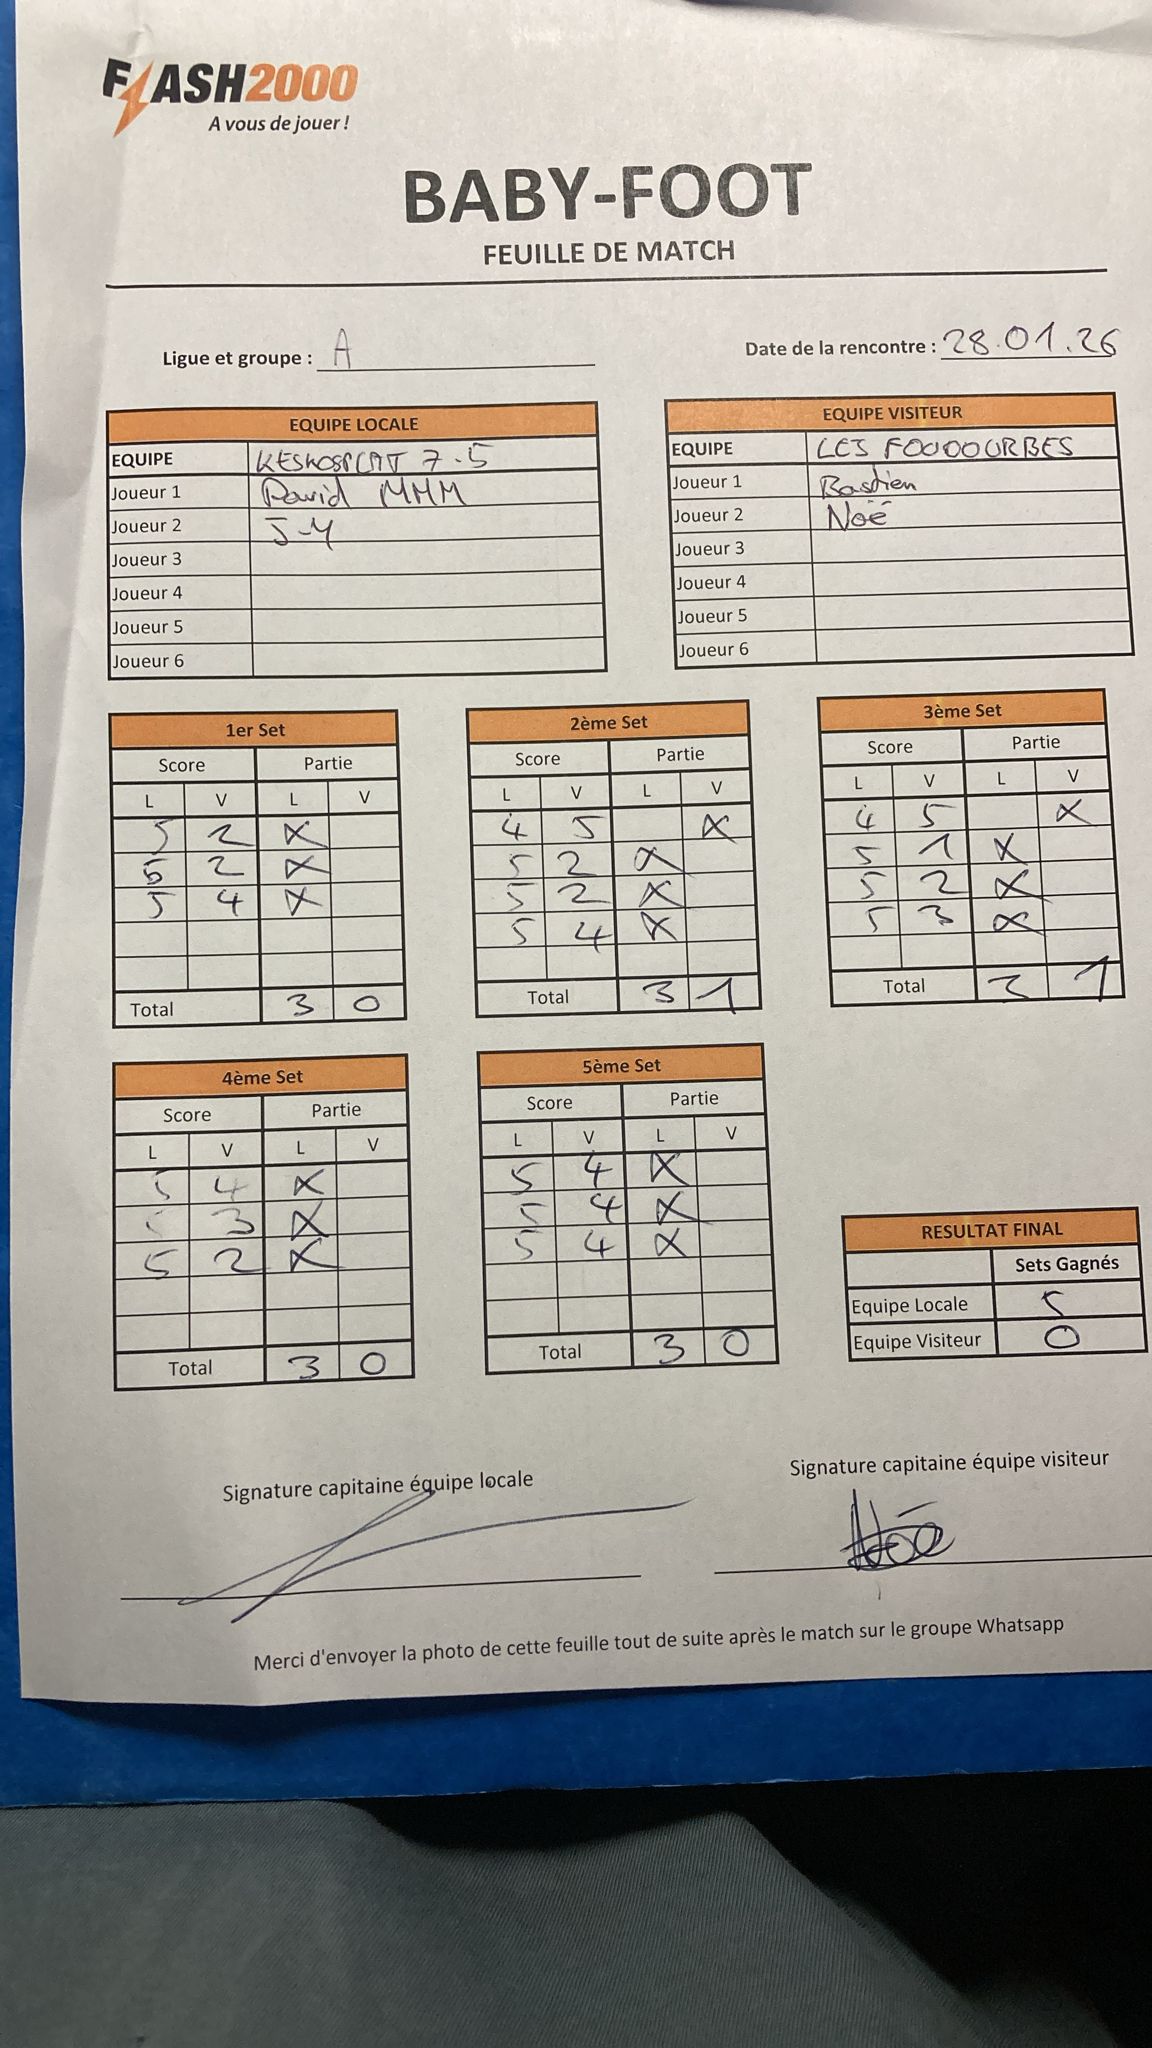 FLASH2000
A vous de jouer !
BABY-FOOT
FEUILLE DE MATCH
Ligue et groupe : A
Date de la rencontre : 28.01.26
EQUIPE LOCALE
EQUIPE KESKOSPLAT 7.5
Joueur 1 David MMM
Joueur 2 J-Y
Joueur 3
Joueur 4
Joueur 5
Joueur 6
EQUIPE VISITEUR
EQUIPE LES FOUDOURBES
Joueur 1 Bastien
Joueur 2 Noë
Joueur 3
Joueur 4
Joueur 5
Joueur 6
1er Set
Score Partie
L V L V
5 2 X
5 2 X
5 4 X
Total 3 0
2ème Set
Score Partie
L V L V
4 5 X
5 2 X
5 2 X
5 4 X
Total 3 1
3ème Set
Score Partie
L V L V
4 5 X
5 1 X
5 2 X
5 3 X
Total 3 1
4ème Set
Score Partie
L V L V
5 4 X
5 3 X
5 2 X
Total 3 0
5ème Set
Score Partie
L V L V
5 4 X
5 4 X
5 4 X
Total 3 0
RESULTAT FINAL
Sets Gagnés
Equipe Locale 5
Equipe Visiteur 0
Signature capitaine équipe locale
Signature capitaine équipe visiteur
Noë
Merci d'envoyer la photo de cette feuille tout de suite après le match sur le groupe Whatsapp